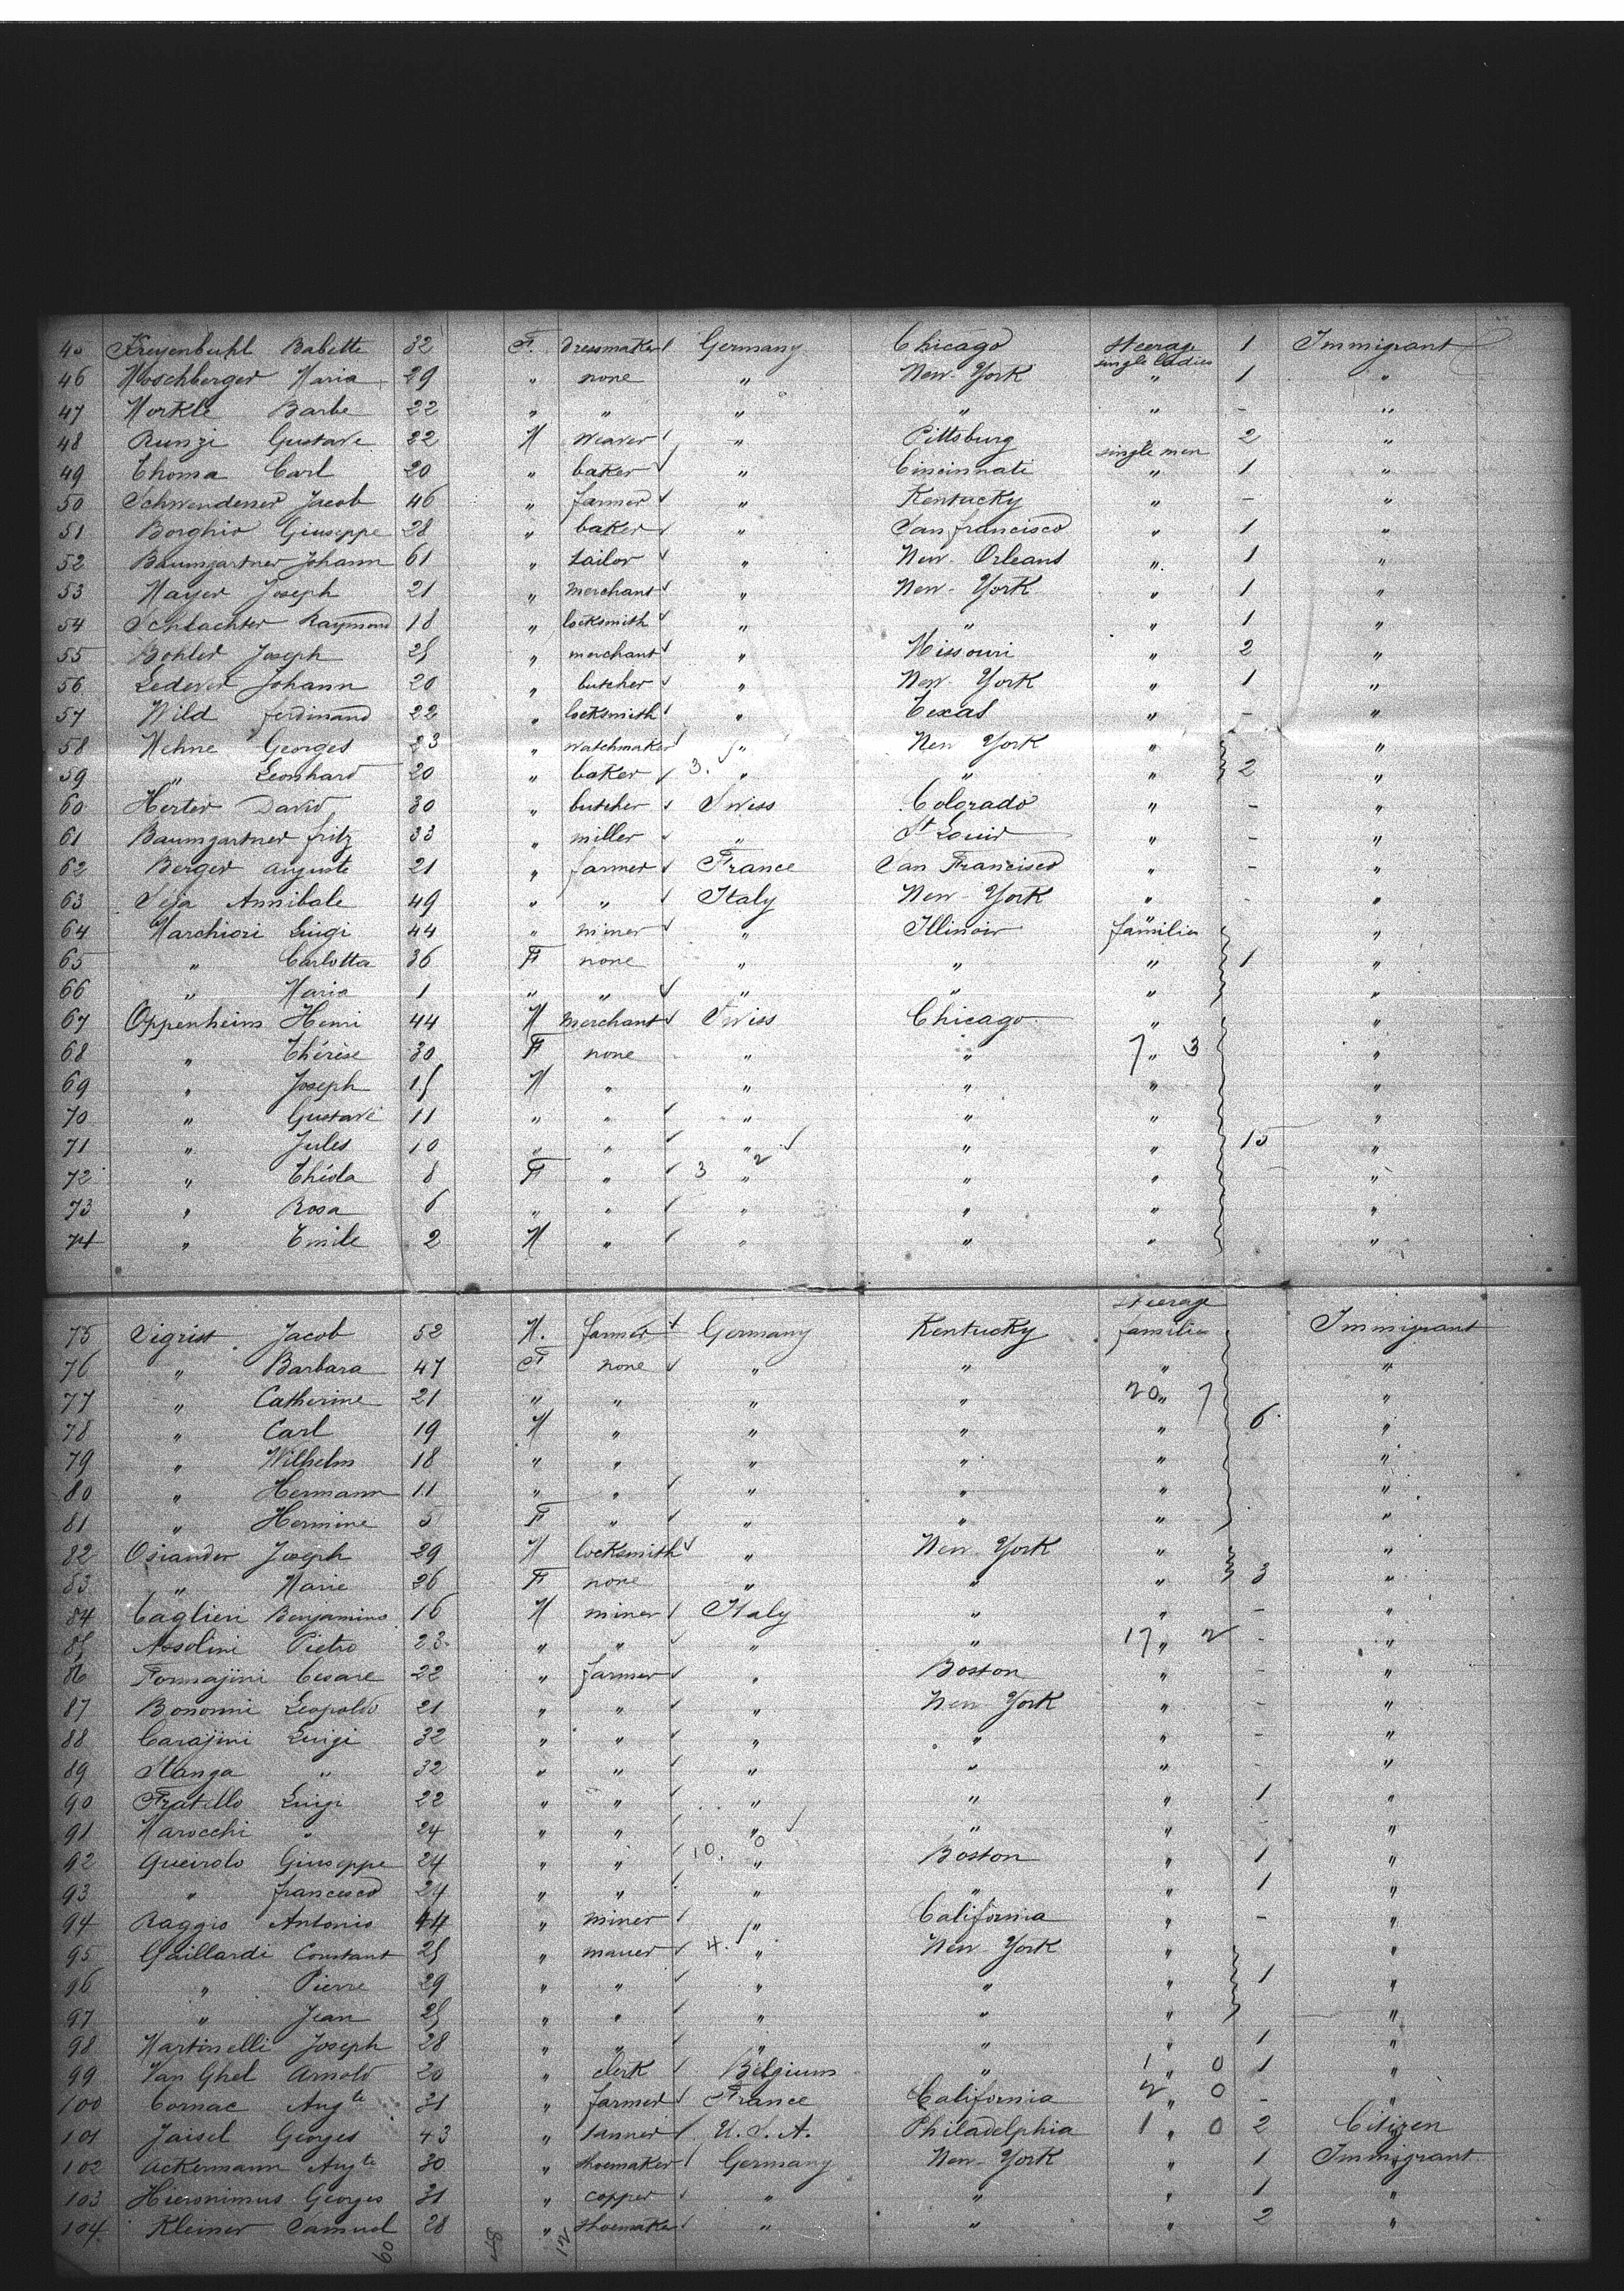 45 Freyenbuhl Babette 32 F. dressmaker Germany Chicago steerage single ladies 1 Immigrant
46 Moschberger Maria 29 " none " New-York " 1 "
47 Morkle Barbe 22 " " " " " - "
48 Runzi Gustave 22 M weaver " Pittsburg single men 2 "
49 Thoma Carl 20 " baker " Cincinnati " 1 "
50 Schwendener Jacob 46 " farmer " Kentucky " - "
51 Borghir Giuseppe 28 " baker " San francisco " 1 "
52 Baumgartner Johann 61 " tailor " New-Orleans " 1 "
53 Mayer Joseph 21 " merchant " New-York " 1 "
54 Schlachter Raymond 18 " locksmith " " " 1 "
55 Bohler Joseph 25 " merchant " Missouri " 2 "
56 Lederer Johann 20 " butcher " New-York " 1 "
57 Wild ferdinand 22 " locksmith " Texas " - "
58 Mehne Georges 23 " watchmaker " New York " "
59 " Leonhard 20 " baker 3. " " " 2 "
60 Herter David 30 " butcher Swiss Colorado " - "
61 Baumgartner fritz 33 " miller " St Louis " - "
62 Berger auguste 21 " farmer France San Francisco " - "
63 Seja Annibale 49 " " Italy New-York " - "
64 Marchiori Luigi 44 " miner " Illinois families "
65 " Carlotta 36 F none " " " 1 "
66 " Maria 1 " " " " " "
67 Oppenheim Henri 44 M merchant Swiss Chicago " "
68 " Thérèse 30 F none " " 7 " 3 "
69 " Joseph 15 M " " " " "
70 " Gustave 11 " " " " " "
71 " Jules 10 " " " " " 15 "
72 " Théola 8 F " 3 2 " " " "
73 " Rosa 6 " " " " " "
74 " Emile 2 M " " " " "
75 Sigrist Jacob 52 M. farmer Germany Kentucky steerage families Immigrant
76 " Barbara 47 F none " " " "
77 " Catherine 21 " " " " 20 " 7 "
78 " Carl 19 M " " " " 6. "
79 " Wilhelm 18 " " " " " "
80 " Hermann 11 " " " " " "
81 " Hermine 5 F " " " " "
82 Osiander Joseph 29 M locksmith " New-York " "
83 " Marie 26 F none " " " 3 "
84 Caglieri Benjamino 16 M miner Italy " " - "
85 Assolini Pietro 23 " " " " 17 " 2 - "
86 Formajini Cesare 22 " farmer " Boston " - "
87 Bononni Leopoldo 21 " " " New York " - "
88 Carajini Luigi 32 " " " " " - "
89 Stanga " 32 " " " " " - "
90 Fratello Luigi 22 " " " " " 1 "
91 Marocchi " 24 " " " " " - "
92 Queirolo Giuseppe 24 " " 10. 0 " Boston " 1 "
93 " francesco 24 " " " " " 1 "
94 Raggio Antonio 44 " miner " California " - "
95 Gaillardi Constant 25 " mauer 4. " New-York " "
96 " Pierre 29 " " " " " 1 "
97 " Jean 25 " " " " " "
98 Martinelli Joseph 28 " " " " " 1 "
99 Van Ghel Arnold 20 " clerk Belgium " 1 " 0 1 "
100 Cornac Augte 31 " farmer France California 2 " 0 - "
101 Jaisel Georges 43 " tanner U.S.A. Philadelphia 1 " 0 2 Citizen
102 Ackermann Augte 30 " shoemaker Germany New-York " 1 Immigrant
103 Hieronimus Georges 31 " copper " " " 1 "
104 Kleiner Samuel 28 " shoemaker " " " 2 "
60 12